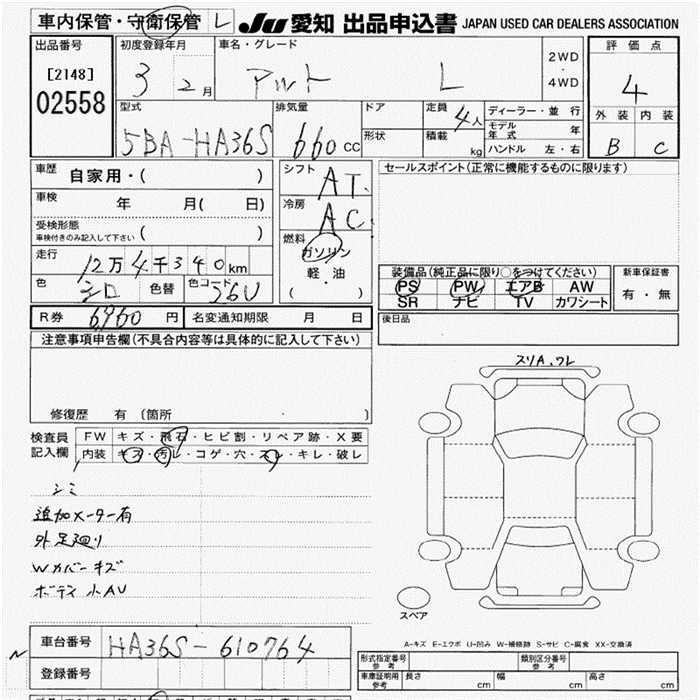 車内保管・守衛保管 L JU 愛知 出品申込書 JAPAN USED CAR DEALERS ASSOCIATION
出品番号 初度登録年月 車名・グレード 2WD ・ 4WD 評価点
[2148] 3 2月 アルト L 4
02558 型式 排気量 ドア 定員 4人 ディーラー・並行 外装 内装
5BA-HA36S 660cc 形状 積載 kg モデル年式 年 B C
ハンドル 左・右
車歴 自家用・( ) シフト AT セールスポイント(正常に機能するものに限ります)
車検 年 月( 日) 冷房 AC
受検形態 車検付きのみ記入して下さい ( ) 燃料 ガソリン
走行 12万4千340km 軽油 装備品(純正品に限り○をつけてください) 新車保証書
色 シロ 色替 色コード 26U ( ) PS PW エアB AW 有・無
SR ナビ TV カワシート
R券 6960円 名変通知期限 月 日 後日品
注意事項申告欄(不具合内容等は具体的に記入して下さい)
スリA、ワレ
修復歴 有 (箇所 )
検査員記入欄 FW キズ・飛石・ヒビ割・リペア跡・X要
内装 キズ・汚レ・コゲ・穴・スレ・キレ・破レ
シミ
追加メーター有
外足廻り
Wカバーキズ
ボディ小AU
スペア
車台番号 HA36S-610764
A-キズ E-エクボ U-凹み W-補修跡 S-サビ C-腐食 XX-交換済
登録番号 形式指定番号 参考 類別区分番号 参考
車庫証明用 参考 長さ cm 幅 cm 高さ cm